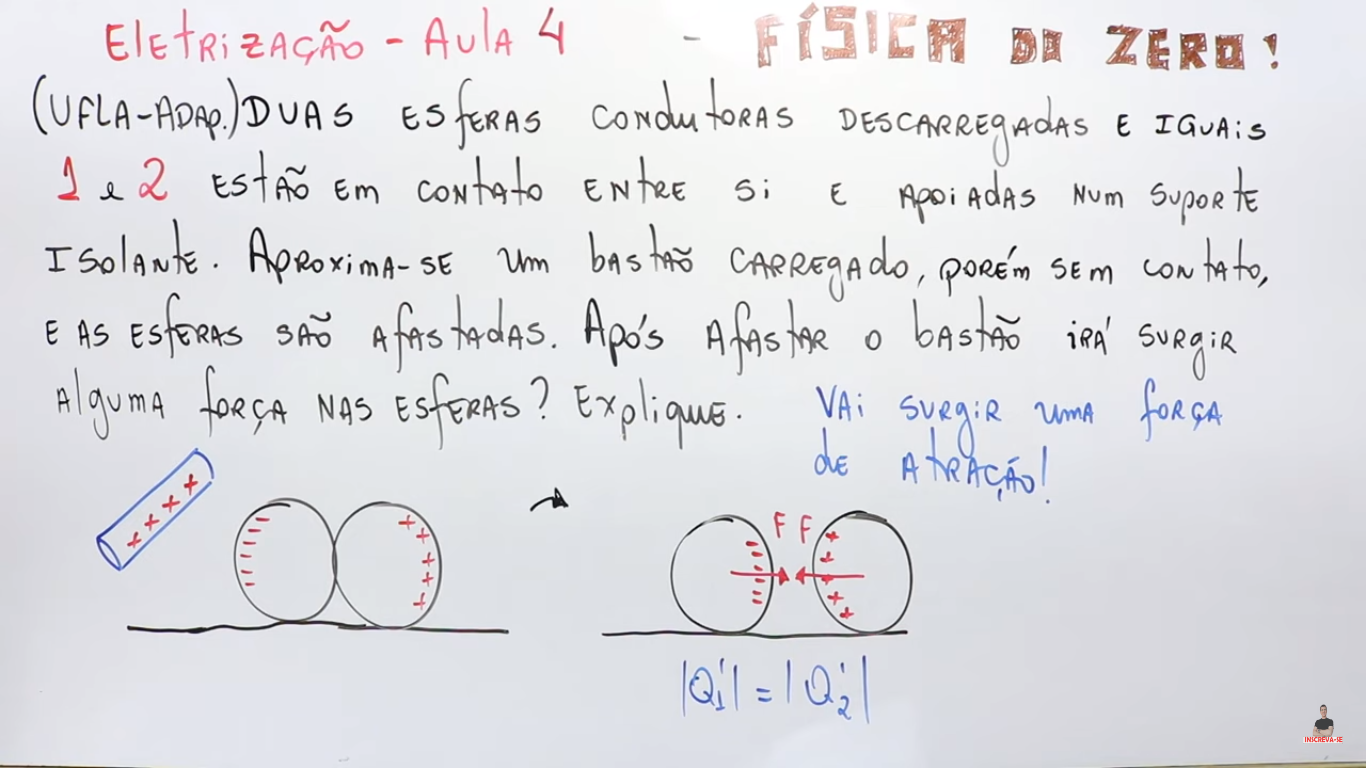 Eletrização - Aula 4 - FÍSICA DO ZERO!
(UFLA-ADAP.) DUAS ESFERAS CONDUTORAS DESCARREGADAS E IGUAIS
1 e 2 ESTÃO EM CONTATO ENTRE SI E APOIADAS NUM SUPORTE
ISOLANTE. APROXIMA-SE UM BASTÃO CARREGADO, PORÉM SEM CONTATO,
E AS ESFERAS SÃO AFASTADAS. APÓS AFASTAR O BASTÃO IRÁ SURGIR
ALGUMA FORÇA NAS ESFERAS? EXPLIQUE. VAI SURGIR UMA FORÇA
DE ATRAÇÃO!
+ + + +
- - - - -
+ + + + +
F F
- - - - -
+ + + + +
|Q'1| = |Q'2|
INSCREVA-SE